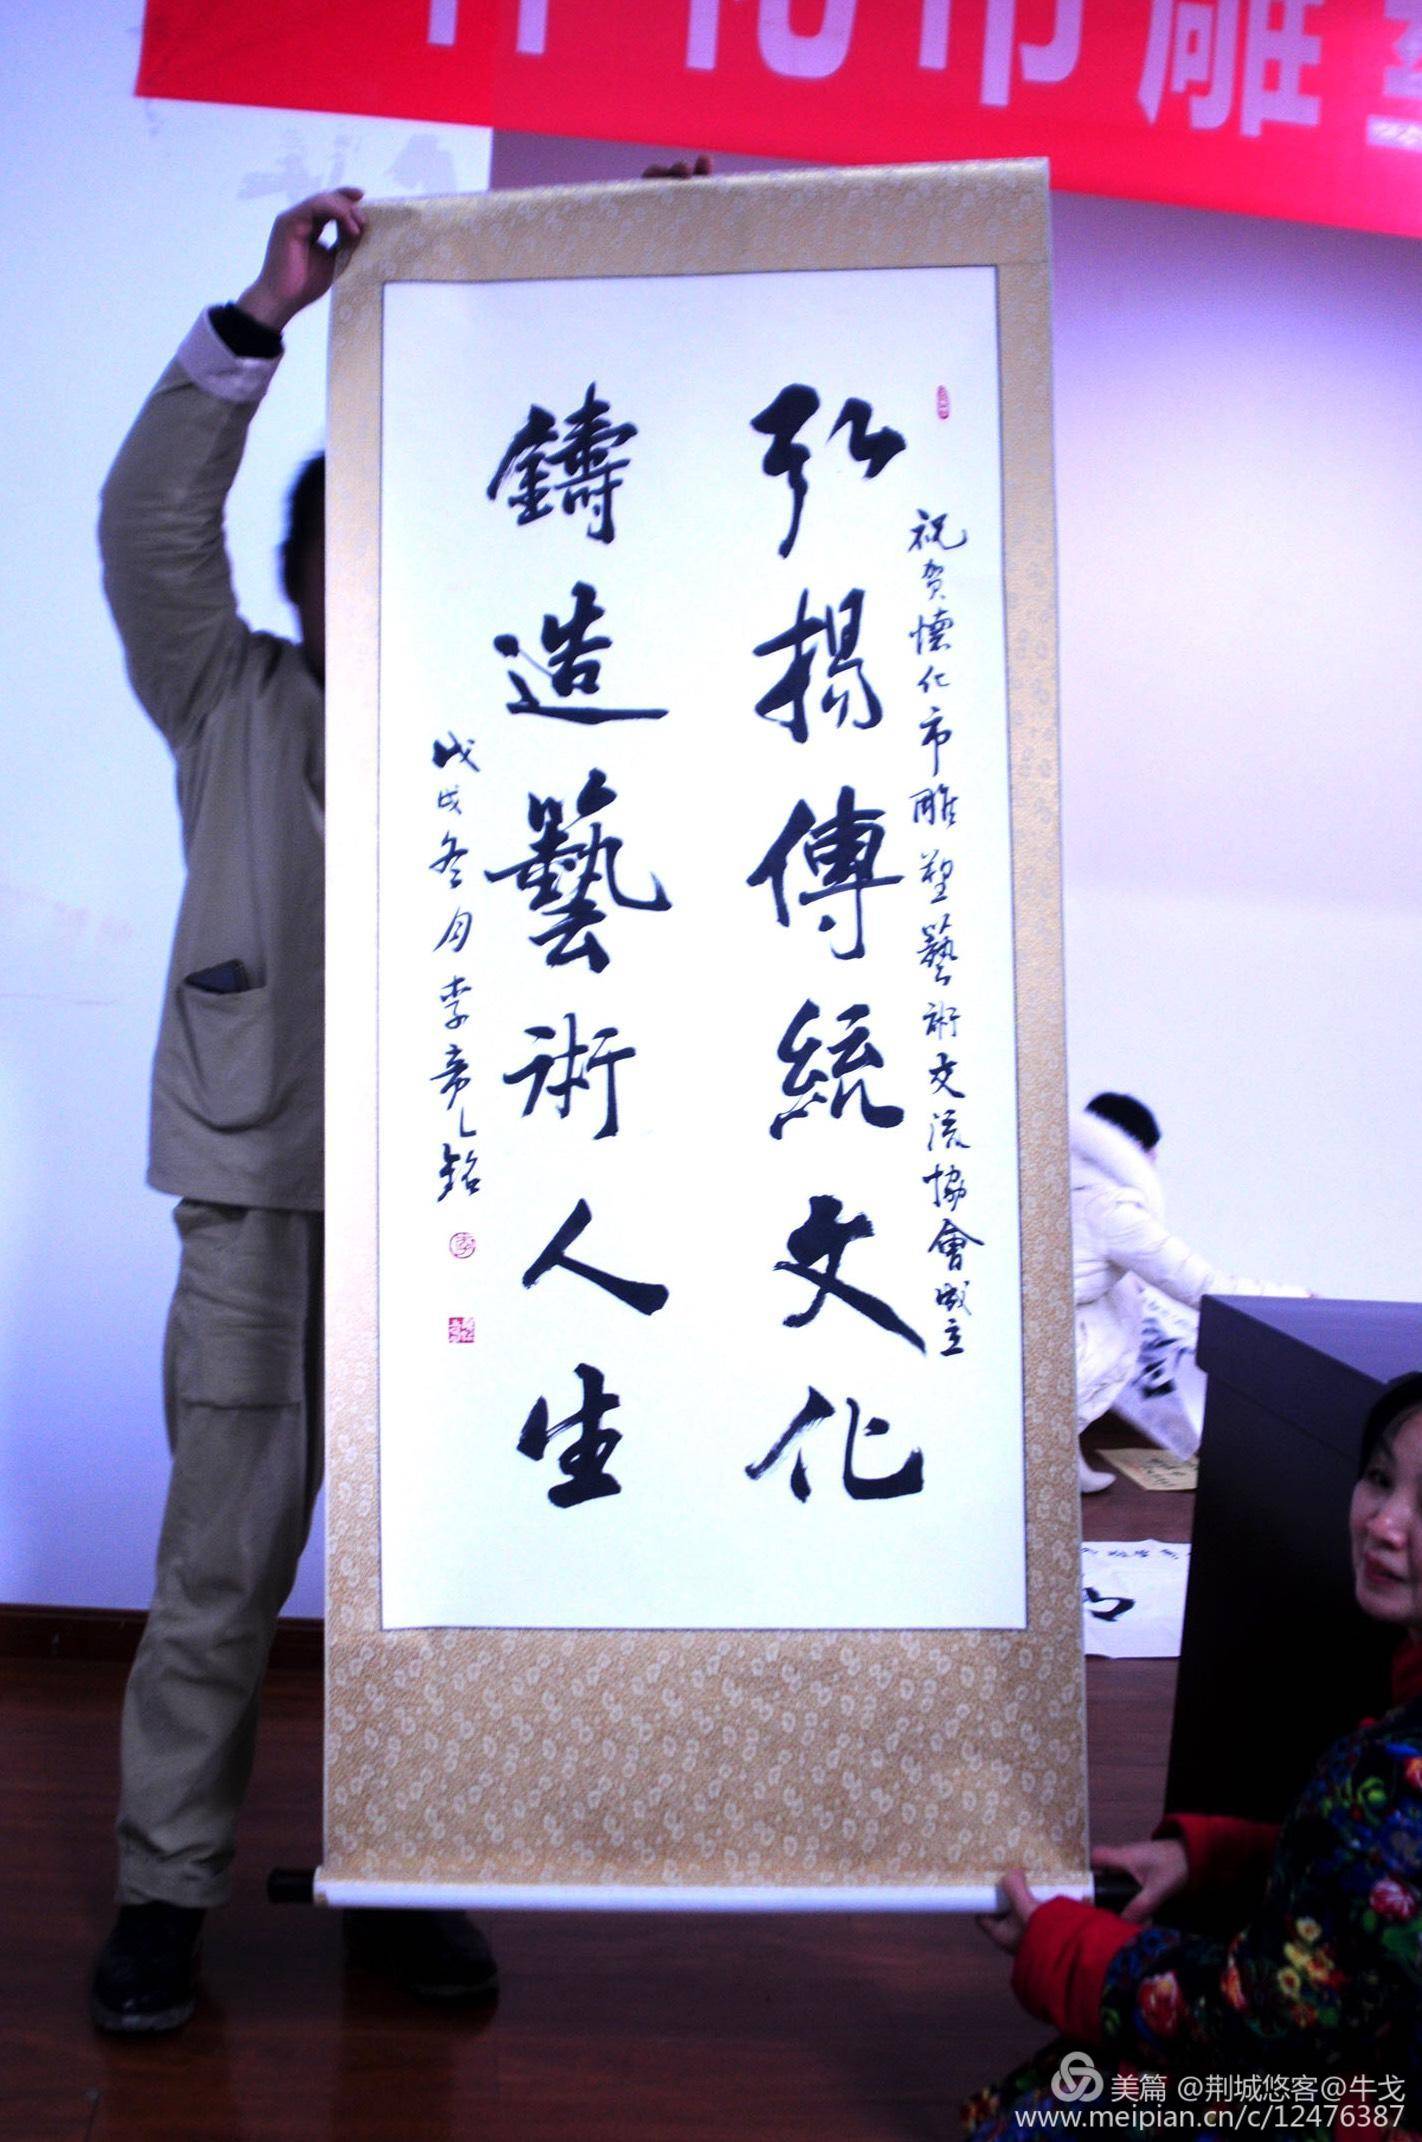 化市雕
祝贺懷化市雕塑藝術交流協會成立
弘揚傳統文化
鑄造藝術人生
戊戌冬月李亮銘
美篇 @荆城悠客@牛戈
www.meipian.cn/c/12476387